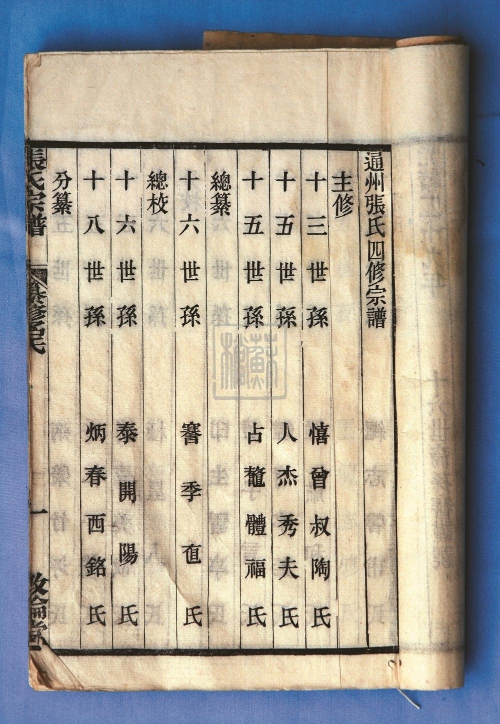 通州張氏四修宗譜
主修
十三世孫 憘曾叔陶氏
十五世孫 人杰秀夫氏
十五世孫 占鼇體福氏
總纂
十六世孫 謇季直氏
總校
十六世孫 泰開陽氏
十八世孫 炳春西銘氏
分纂
張氏宗譜 纂修名氏 一 敦倫堂